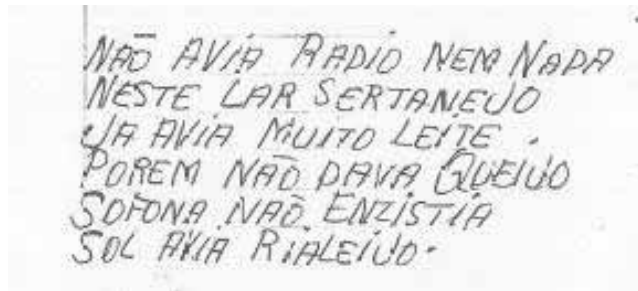 NAO AVIA RADIO NEM NADA
NESTE LAR SERTANEJO
JA AVIA MUITO LEITE.
POREM NÃO DAVA QUEIJO
SOFONA NÃO ENZISTIA
SOL AVIA RIALEIJO.